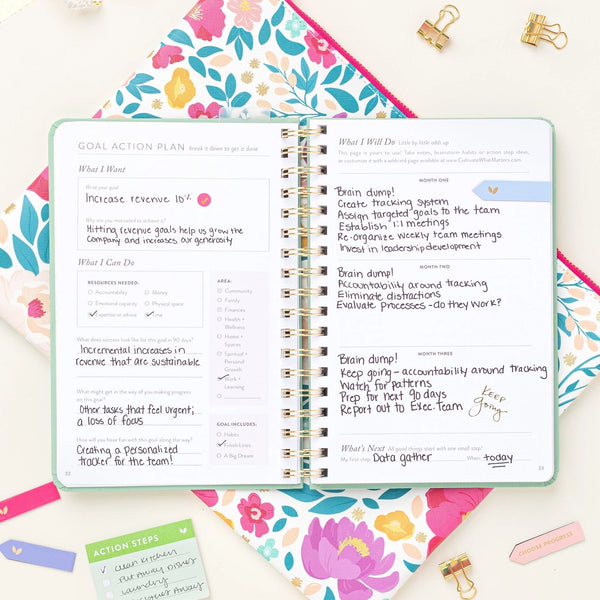 GOAL ACTION PLAN break it down to get it done
What I Want
Write your goal:
Increase revenue 10%
Why are you motivated to achieve it?
Hitting revenue goals help us grow the
company and increases our generosity
What I Can Do
RESOURCES NEEDED:
Accountability
Money
Emotional capacity
Physical space
Expertise or advice
Time
AREA:
Community
Family
Finances
Health +
Wellness
Home +
Spaces
Spiritual +
Personal
Growth
Work +
Learning
What does success look like for this goal in 90 days?
Incremental increases in
revenue that are sustainable
What might get in the way of you making progress
on this goal?
Other tasks that feel urgent;
a loss of focus
How will you have fun with this goal along the way?
Creating a personalized
tracker for the team!
GOAL INCLUDES:
Habits
Finish Lines
A Big Dream
32
What I Will Do Little by little adds up
This page is yours to use! Take notes, brainstorm habits or action step ideas,
or customize it with a wildcard page available at www.CultivateWhatMatters.com.
MONTH ONE
Brain dump!
Create tracking system
Assign targeted goals to the team
Establish 1:1 meetings
Re-organize weekly team meetings
Invest in leadership development
MONTH TWO
Brain dump!
Accountability around tracking
Eliminate distractions
Evaluate processes - do they work?
MONTH THREE
Brain dump!
Keep going - accountability around tracking
Watch for patterns
Prep for next 90 days
Report out to Exec. Team
KEEP
going
What's Next All good things start with one small step!
My first step: Data gather When: today
33
ACTION STEPS
clean kitchen
Put away dishes
Laundry
clothes away
CHOOSE PROGRESS